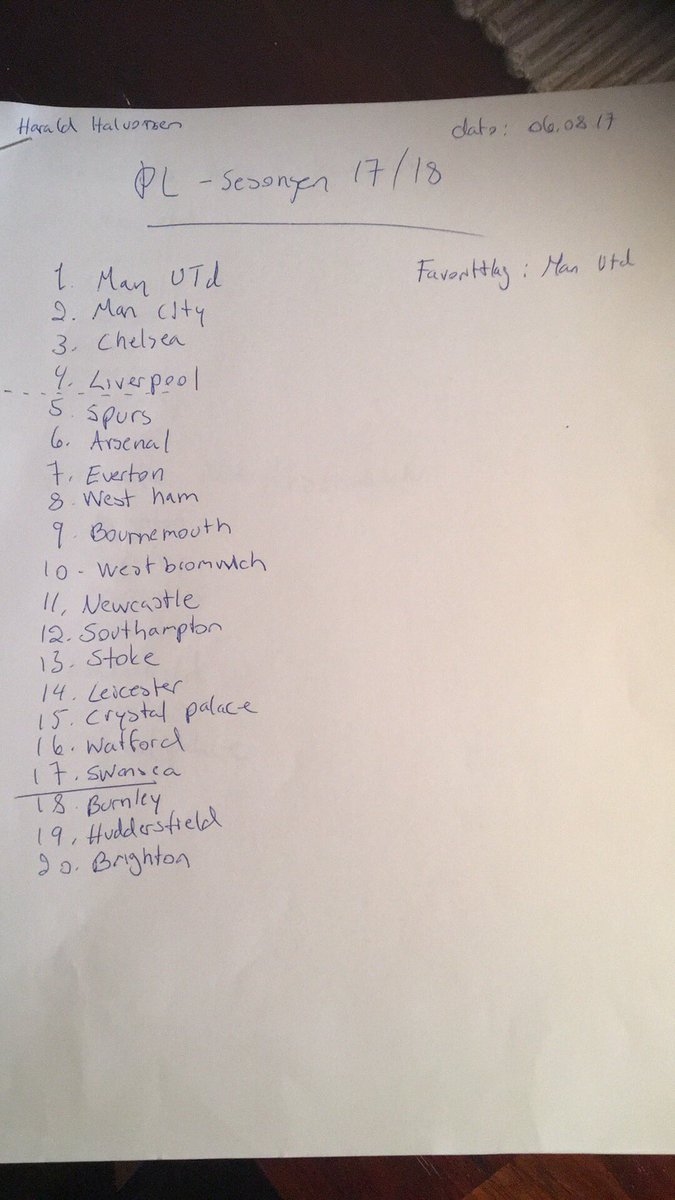 Harald Halvorsen
dato: 06.08 17
PL - Sesongen 17/18
1. Man UTd
Favorittlag : Man Utd
2. Man City
3. Chelsea
4. Liverpool
5. Spurs
6. Arsenal
7. Everton
8. West ham
9. Bournemouth
10 - West bromwich
11, Newcastle
12. Southampton
13. Stoke
14. Leicester
15. Crystal palace
16. Watford
17. Swansea
18. Burnley
19, Huddersfield
20. Brighton